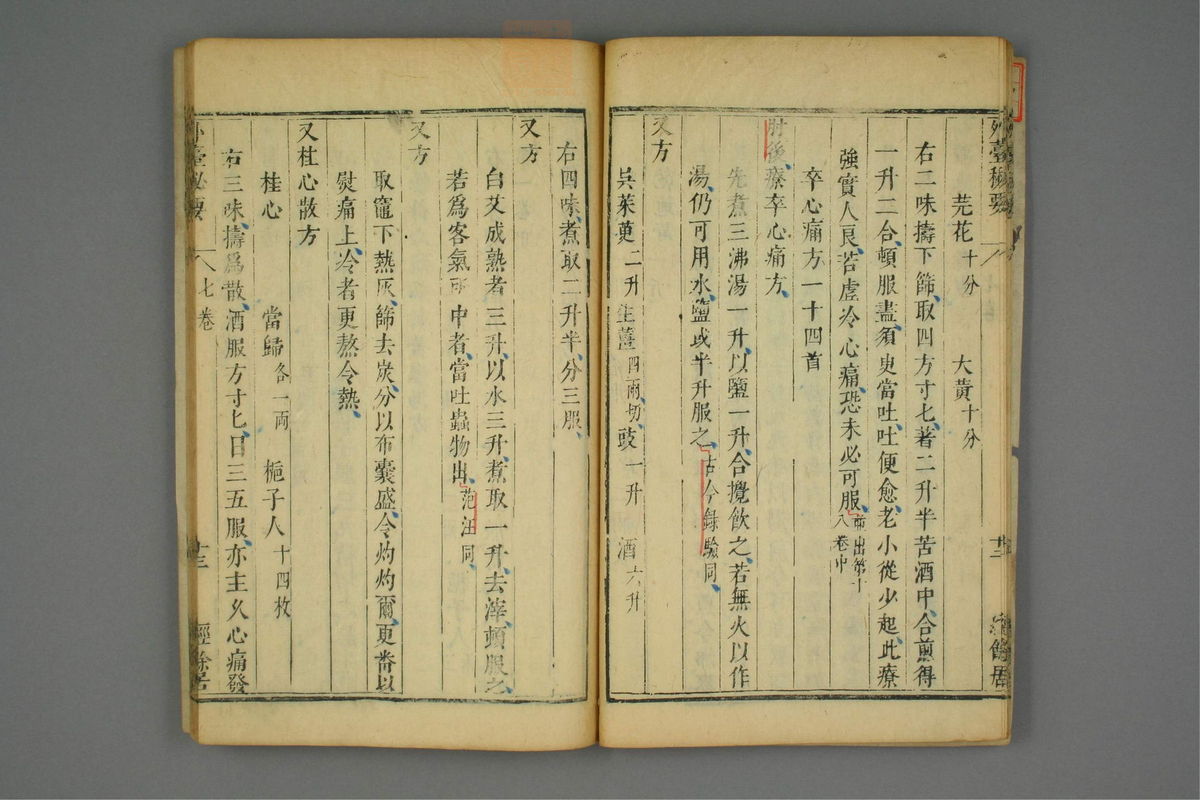 外臺秘要
芫花十分 大黄十分
右二味擣下篩取四方寸匕著二升半苦酒中合煎得
一升二合頓服盡須臾當吐吐便愈老小從少起此療
強實人良若虛冷心痛恐未必可服並出第十八卷中
卒心痛方一十四首
肘後療卒心痛方
先煮三沸湯一升以鹽一升合攪飲之若無火以作
湯仍可用水鹽或半升服之古今錄驗同
又方
吳茱萸二升 生薑四兩切 豉一升 酒六升
右四味煮取二升半分三服
又方
白艾成熟者三升以水三升煮取一升去滓頓服之
若為客氣所中者當吐蟲物出范汪同
又方
取竈下熱灰篩去炭分以布囊盛令灼灼爾更番以
熨痛上冷者更熬令熱
又桂心散方
桂心 當歸各一兩 梔子人十四枚
右三味擣為散酒服方寸匕日三五服亦主久心痛發
外臺秘要 七卷 十三 經餘居